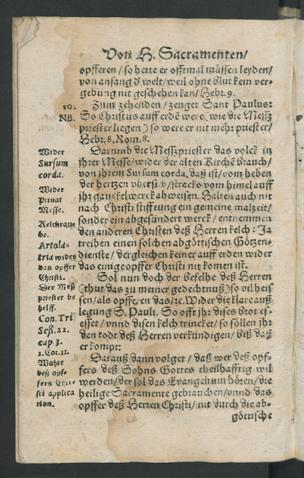 Von H. Sacramenten/
opfferen / so hette er offtmal müssen leyden /
von anfang d welt / weil ohne blut kein ver-
gebung nit geschehen kan / Hebr. 9.
10. Zum zehenden / zeuget Sant Paulus:
NB. So Christus auff erdē were / wie die Meßz
priester liegen) so were er nit mehr priester /
Hebr. 8. Rom. 8.
Darumb die Meßzpriester das volck in
jhrer Messe / wider der alten Kirchē brauch /
von jhrem Sursum corda, daß ist / vom heben
der hertzen
jhr gauckelwerck abweisen. Halten auch nit
nach Christi stifftung ein gemeine malzeit /
sonder ein abgesündert werck / entnemmen
den anderen Christen deß Herren kelch: Ja
treiben einen solchen abgöttischen Götzen-
dienste / dergleichen keiner auff erden wider
das einig opffer Christi nit komen ist.
Sol nun doch der Befelhe deß Herren
(thut das zu meiner gedechtnuß) so vil heis-
sen / als opfferen das / ꝛc. Wider die klare auß
legung S. Pauli. So offt jhr dises brot es-
sen / vnnd disen kelch trincket / so söllen jhr
den todt deß Herren verkündigen / biß daß
er kompt:
Darauß dann volget / daß wer deß opf-
fers deß Sohns Gottes theilhafftig wil
werden / der sol das Evangelium hören / die
heilige Sacramente gebrauchen / vnnd das
opffer deß Herren Christi / nit durch die ab-
göttische
Wider
Sursum
corda.
Wider
Privat
Messe.
Kelchraub
be.
Artola-
tria wider
den opffer
Christi.
Der Meß
priester be
helff.
Con. Tri
Seß. 22.
cap. 3.
1. Cor. 11.
Wahre
deß opf-
fers Chri-
sti applica
tion.